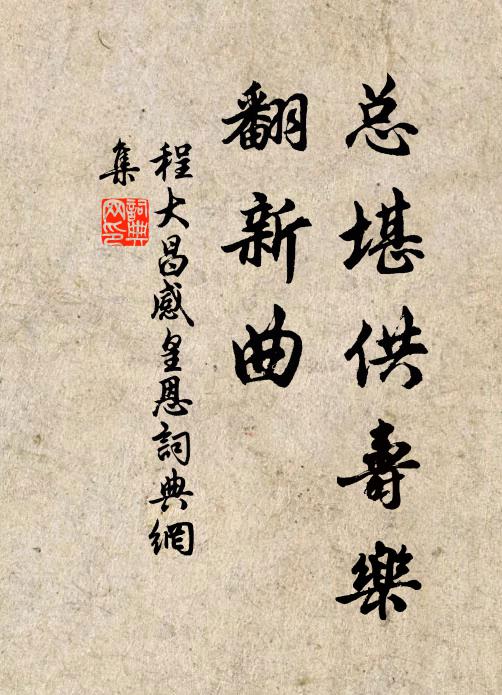 总堪供壽樂
翻新曲
程大昌感皇恩詞典網
集
詞典
网印